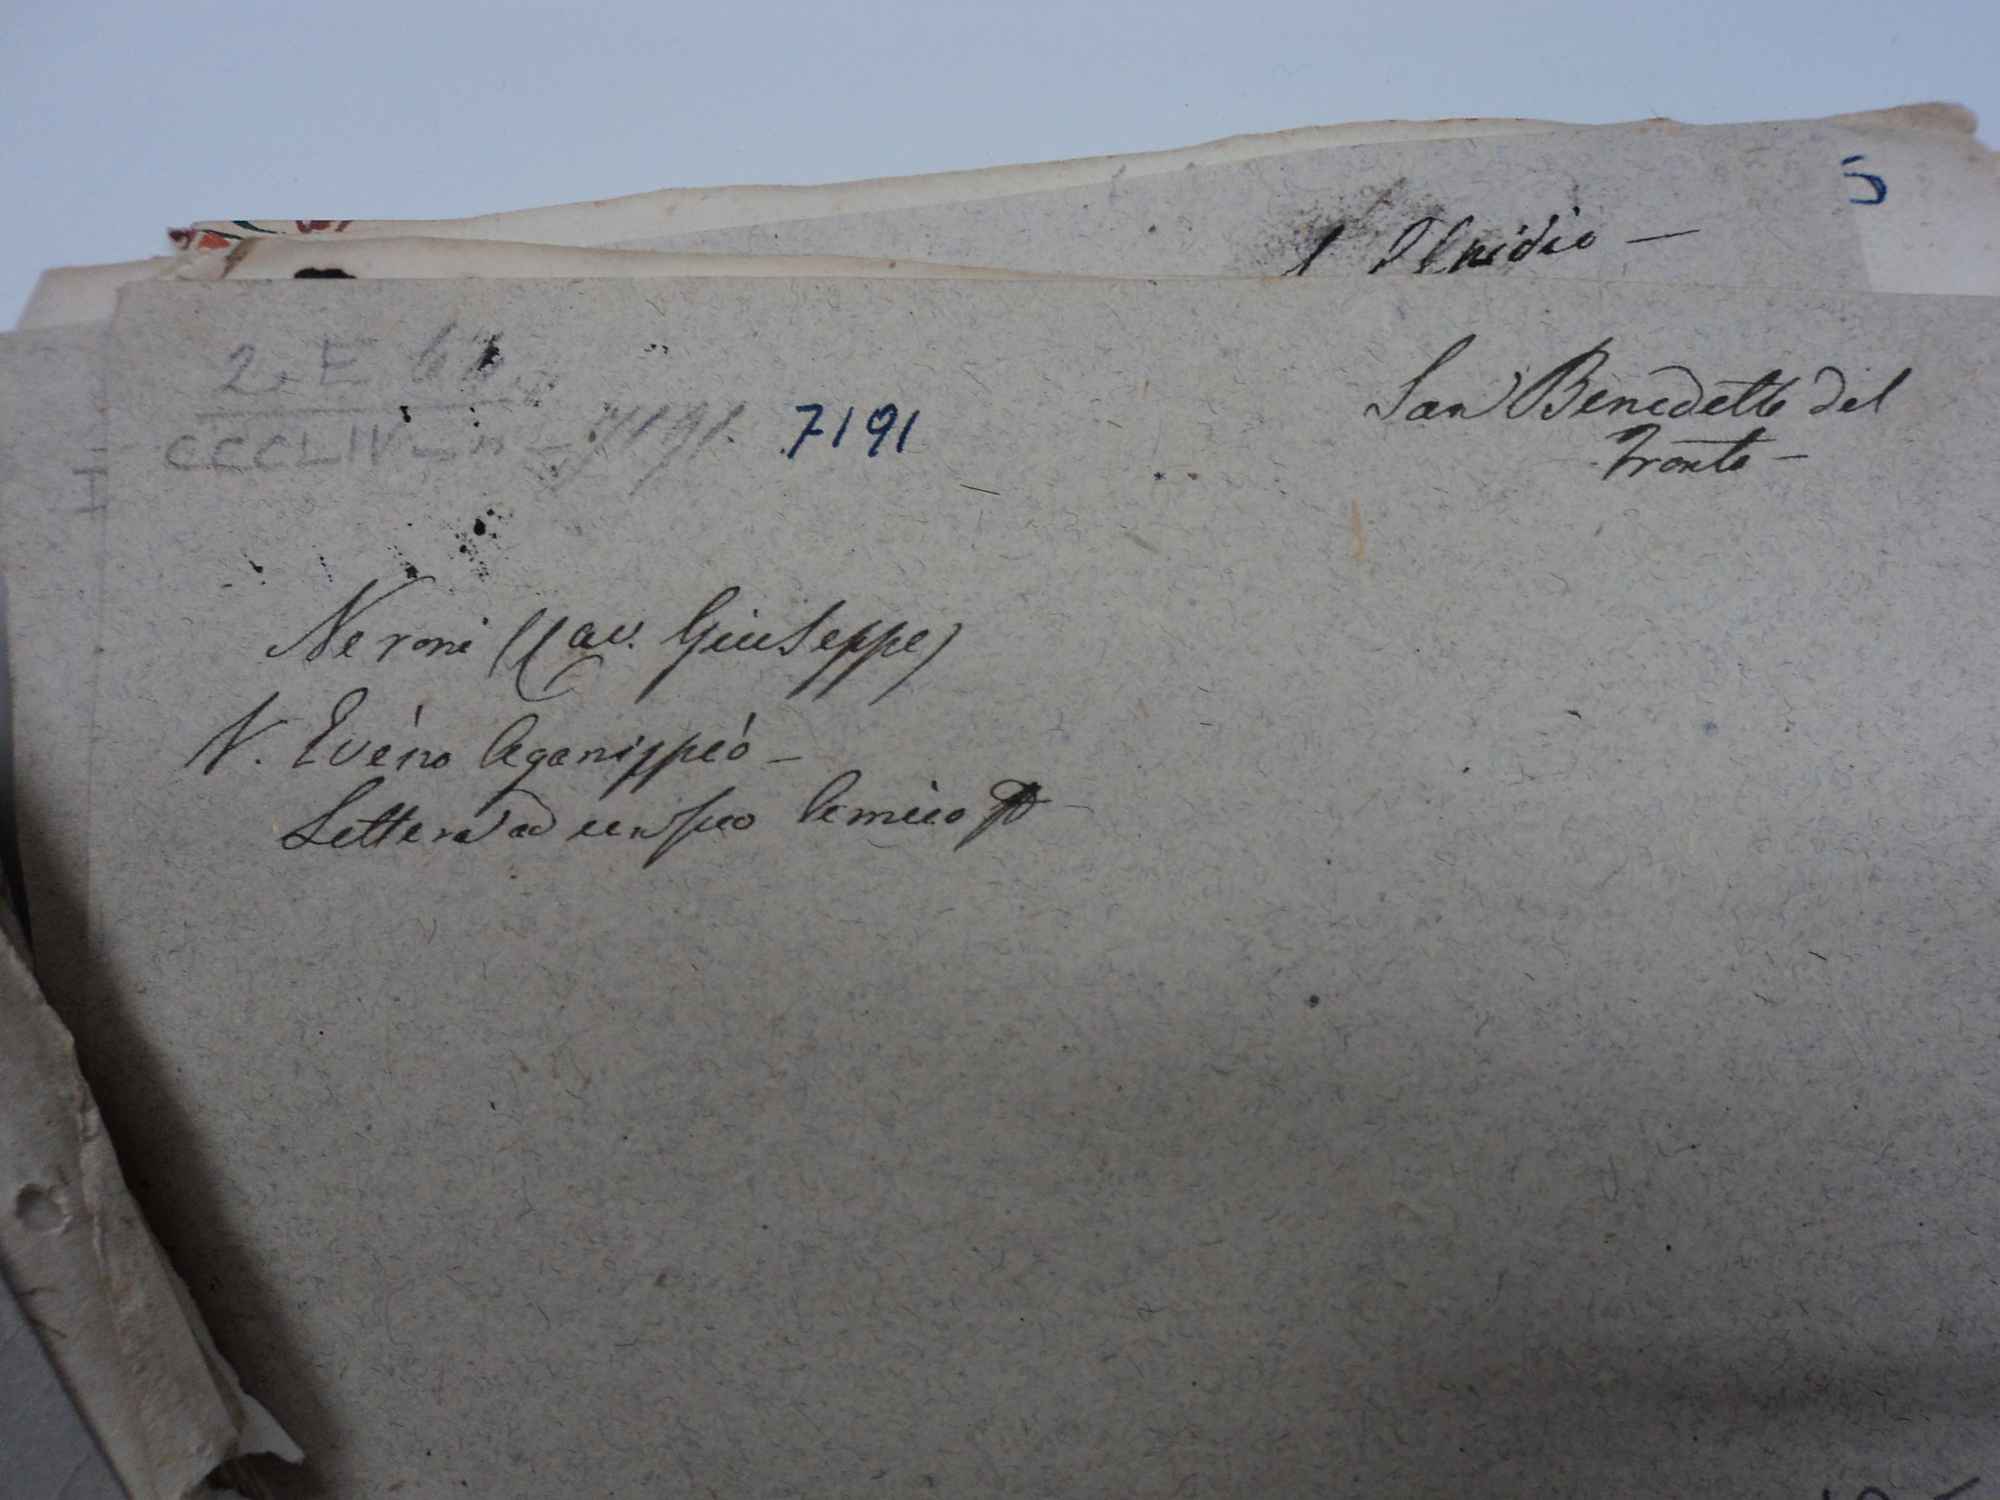 5
2. E
CCCLIV - n - 7191. 7191
San Benedetto del
Tronto -
Neroni (Cav. Giuseppe)
V. Evéno Aganippéo -
Lettera ad un suo Amico